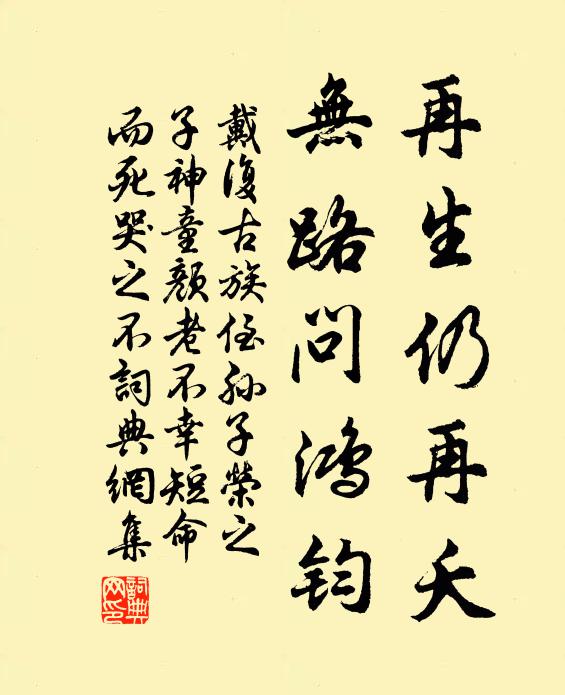 再生仍再夭
無路問鴻鈞
戴復古族侄孙子榮之
子神童顏老不幸短命
而死哭之不詞典網集
詞典网印